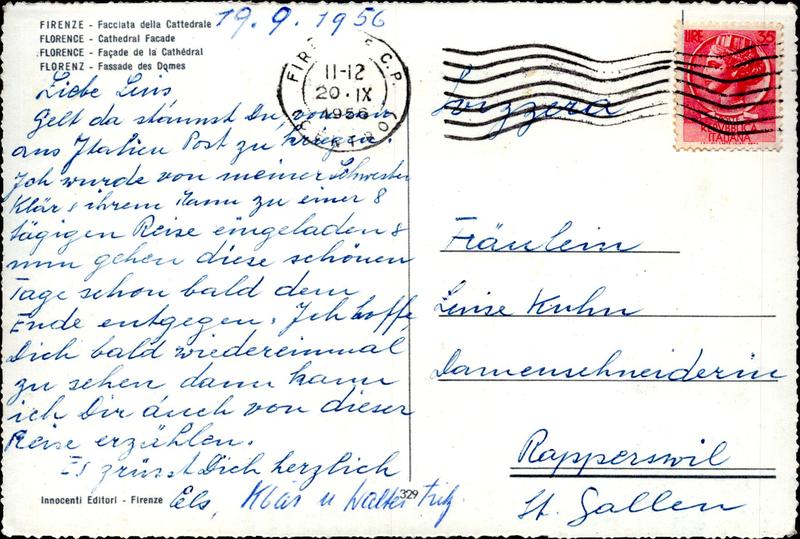 19.9.1956
FIRENZE - Facciata della Cattedrale
FLORENCE - Cathedral Facade
FLORENCE - Façade de la Cathédral
FLORENZ - Fassade des Domes
Liebe Leins
Gelt da staunst Du, von mir
aus Italien Post zu kriegen.
Ich wurde von meiner Schwester
Klär & ihrem Mann zu einer 8
tägigen Reise eingeladen &
nun gehen diese schönen
Tage schon bald dem
Ende entgegen. Ich hoffe,
Dich bald wiedereinmal
zu sehen dann kann
ich Dir auch von dieser
Reise erzählen.
Es grüsst Dich herzlich
Els, Klär u Walter Fritz
Innocenti Editori - Firenze
329
FIRENZE C.P.
11-12
20·IX
1956
CENTRO
LIRE 35
REPVBBLICA
ITALIANA
Svizzera
Fräulein
Leise Kuhn
Damenschneiderin
Rapperswil
St. Gallen